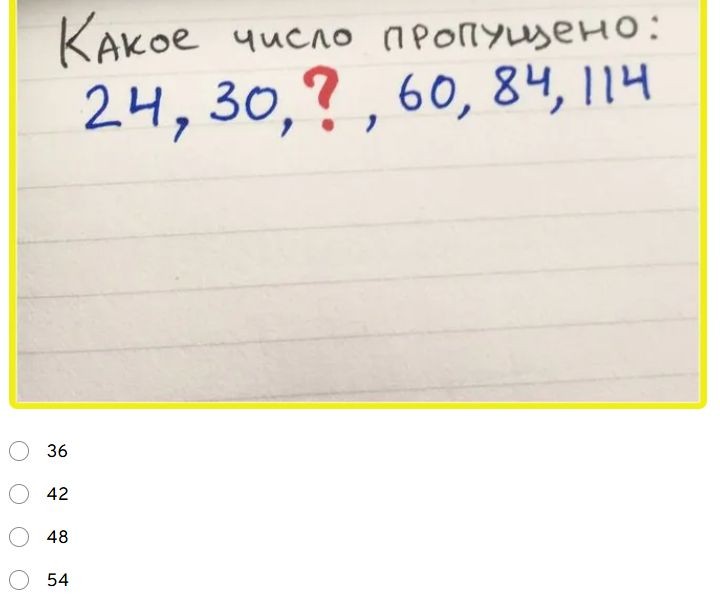 Какое число пропущено:
24, 30, ?, 60, 84, 114
36
42
48
54